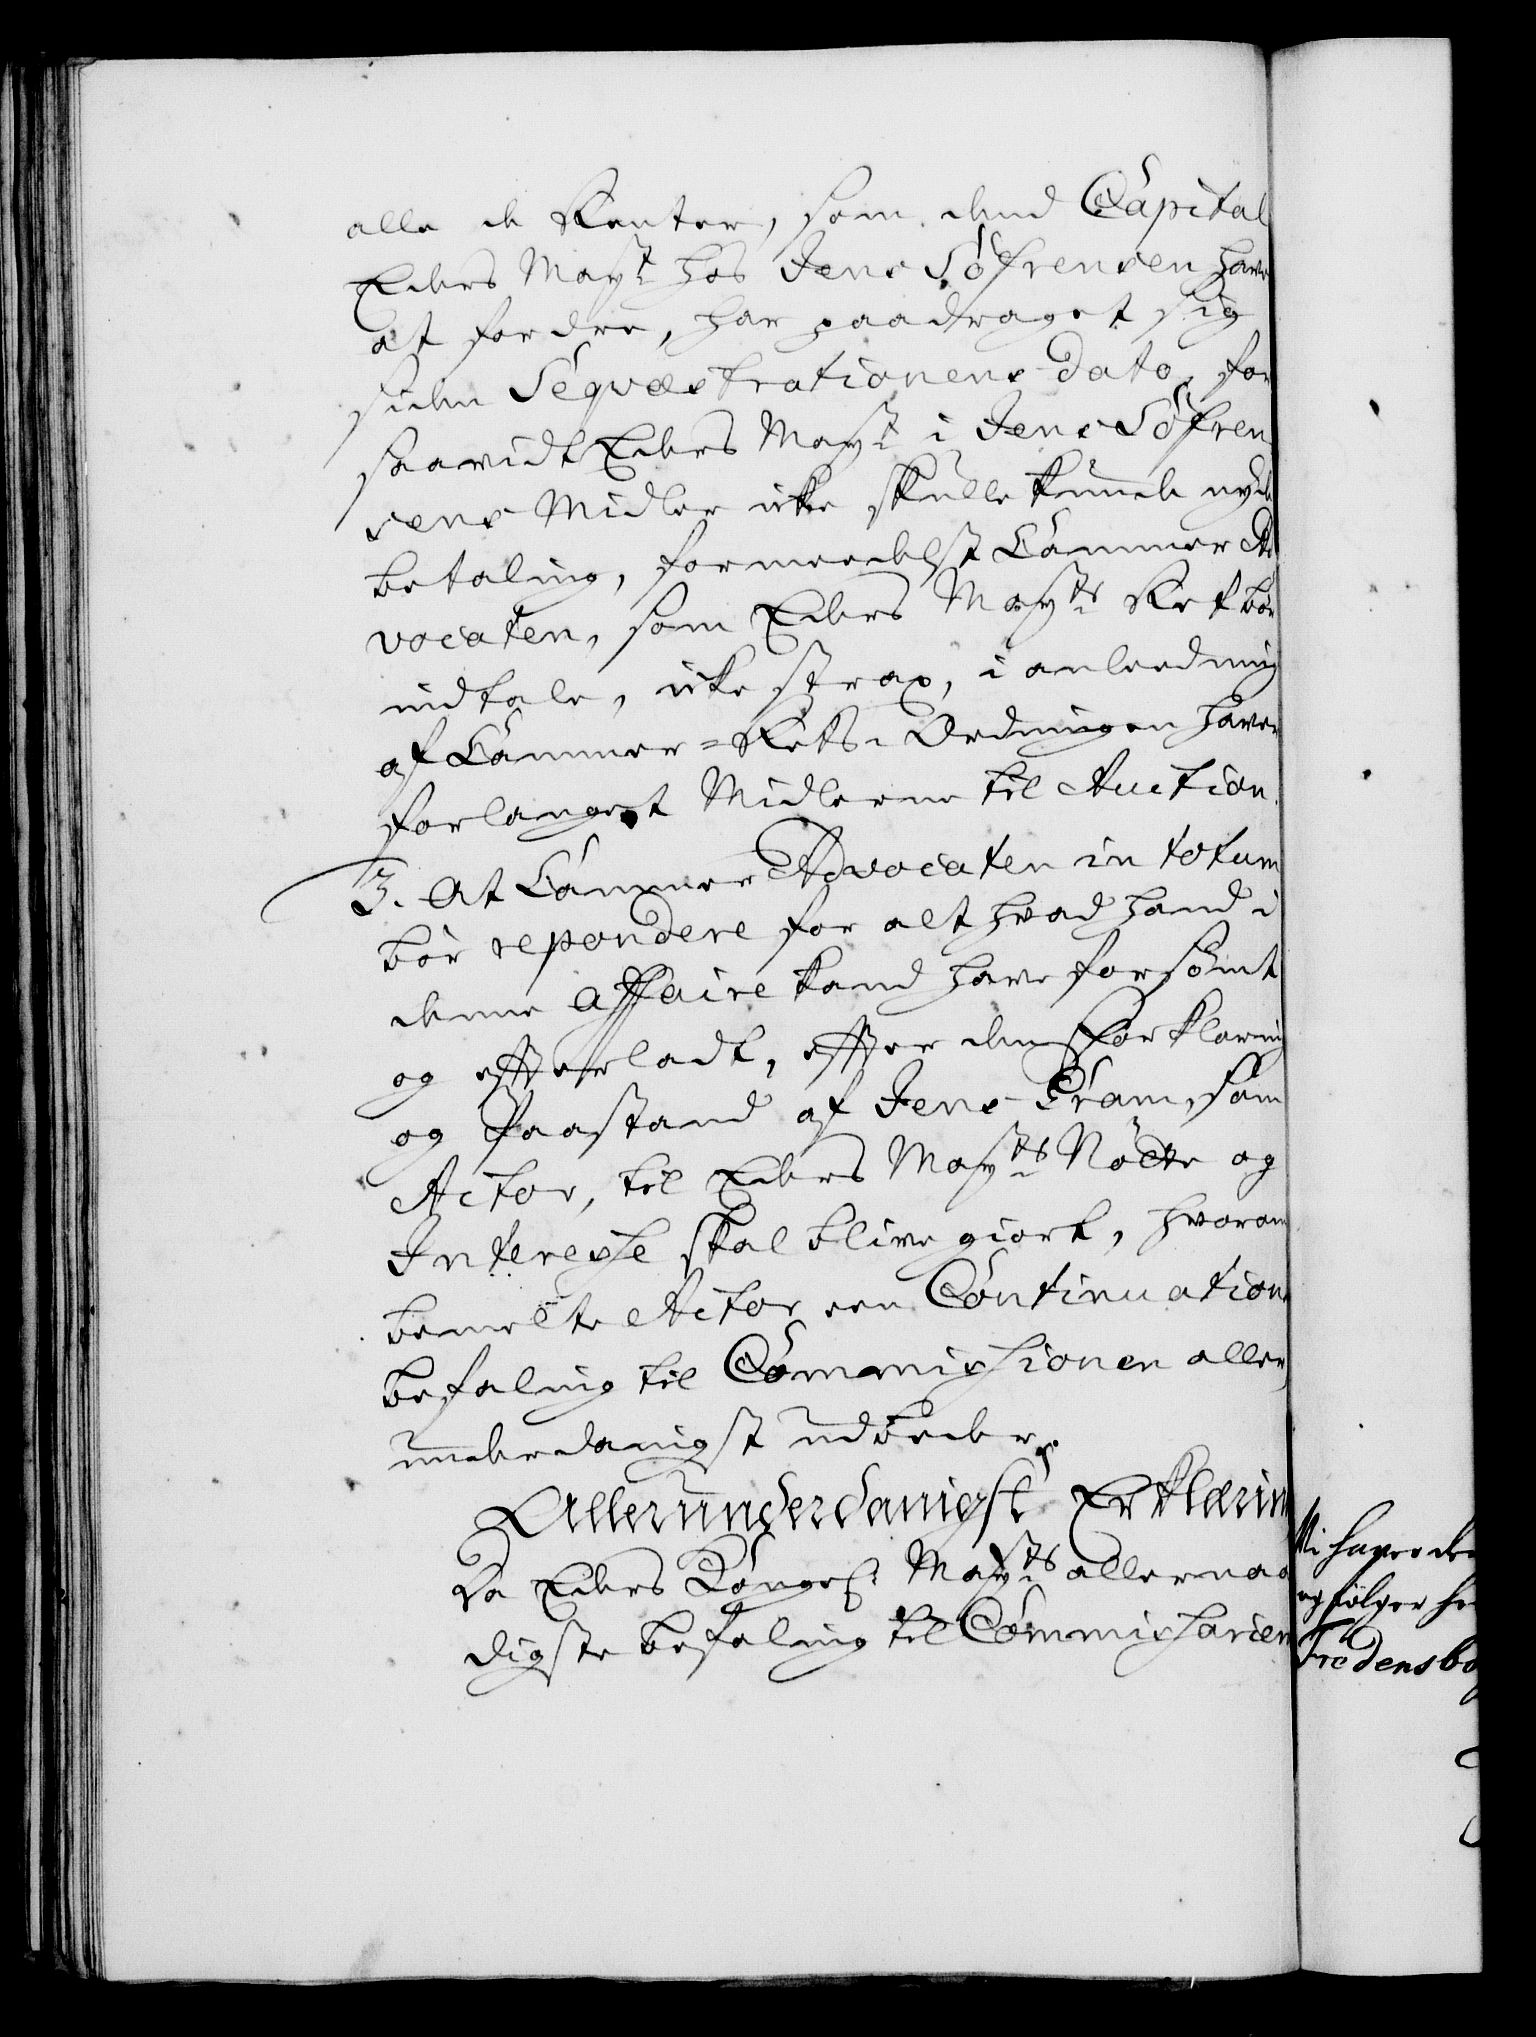 alle de Renter, som dend Capital
Eders Mayt: hos Jens Söfrensen have
at fordre, har paadraget sig
siden Seqvestrationens dato, for
saavidt Eders Mayt: i Jens Söfren
sens Midler icke skulle kunde nyde
betaling, formeedelst Cammer Ad
vocaten, som Eders Mayts: Ret bör
indtale, icke strax, i anleedning
af Cammer-Rets-Ordningen haver
forlanget Midlerne til Auction.
3. At Cammer Advocaten in totum
bör repondere for alt hvad hand i
denne affaire kand have forsömt
og efterladt, efter den forklaring
og Paastand af Jens Cram, som
Actor, til Eders Mayts: Nötte og
Interesse skal blive giort, hvorom
bemelte Actor een Continuations
befaling til Commissionen aller,
underdanigst udbeder.
Allerunderdanigst Erklærin
Da Eders Kongel: Mayts: allernaa
digste befaling til Commissarien
Vi haver de
og fölger he
Fredensbo